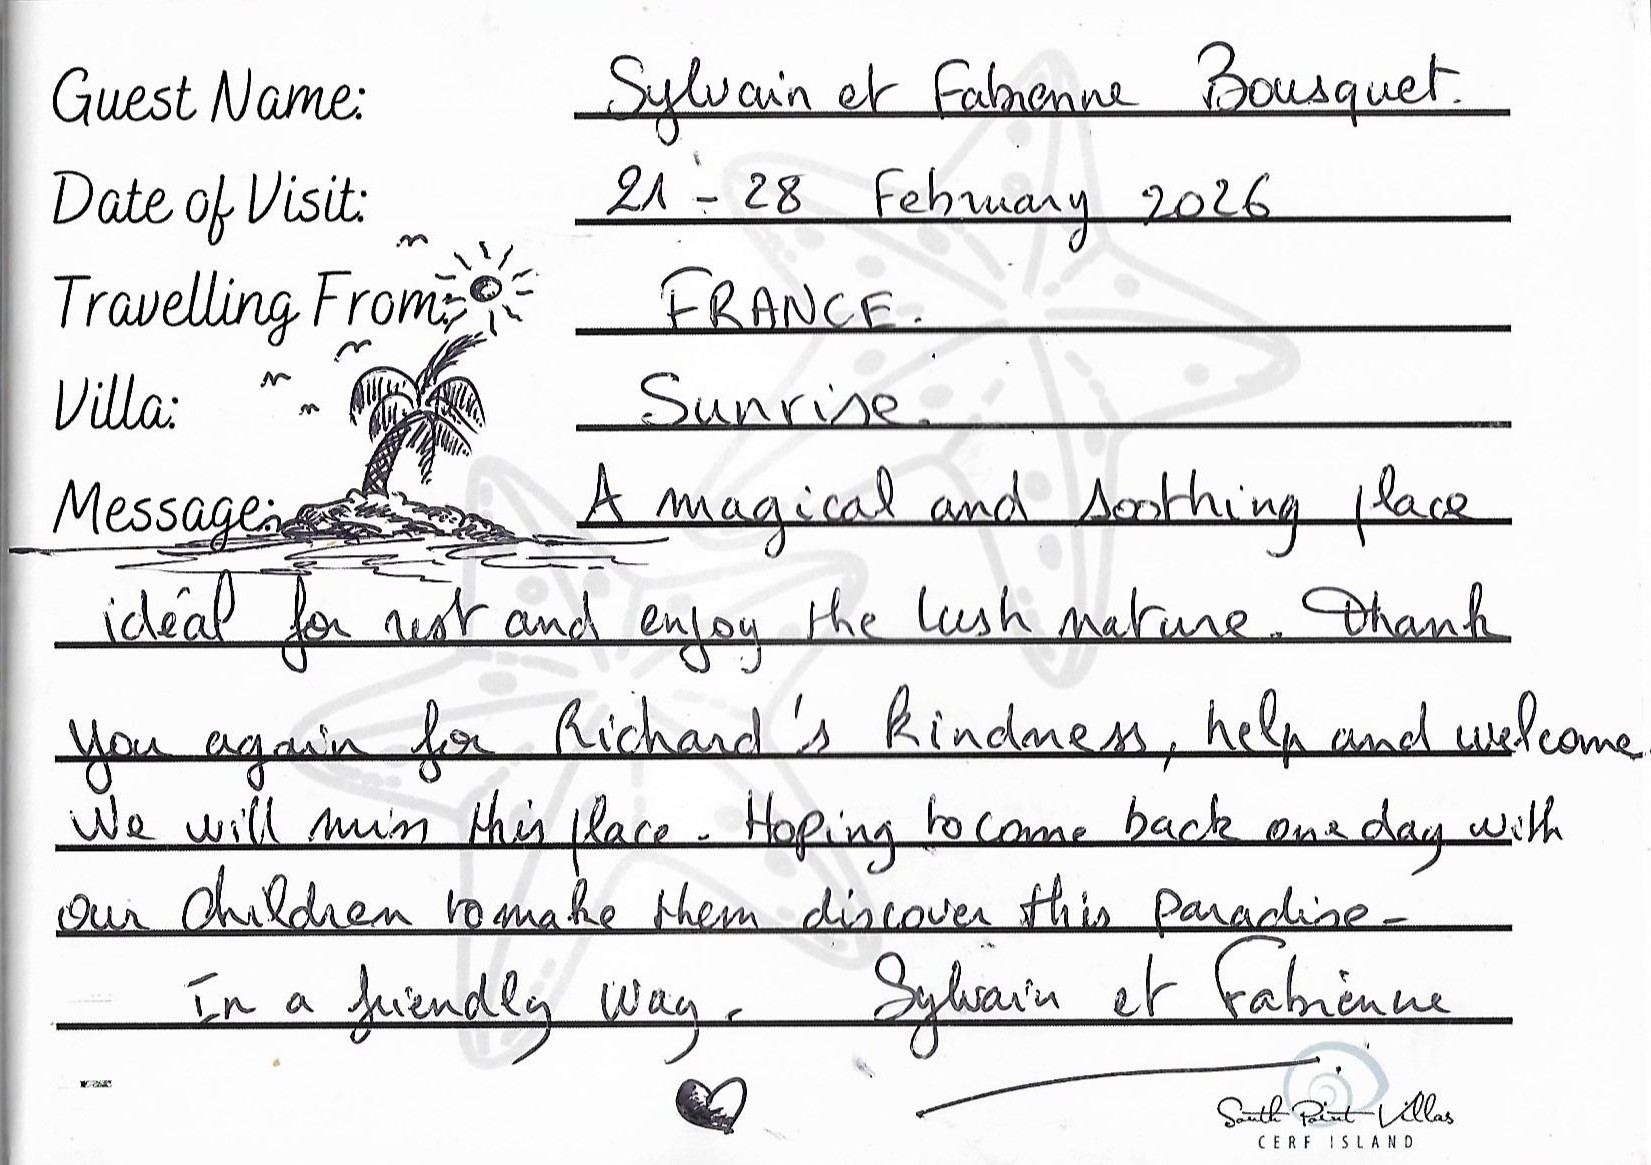 Guest Name: Sylvain et Fabienne Bousquet.
Date of Visit: 21 - 28 February 2026
Travelling From: FRANCE.
Villa: Sunrise.
Message: A magical and soothing place
idéal for rest and enjoy the lush nature. Thank
you again for Richard's kindness, help and welcome.
We will miss this place. Hoping to come back one day with
our children to make them discover this paradise-
In a friendly way. Sylvain et Fabienne
South Point Villas
CERF ISLAND